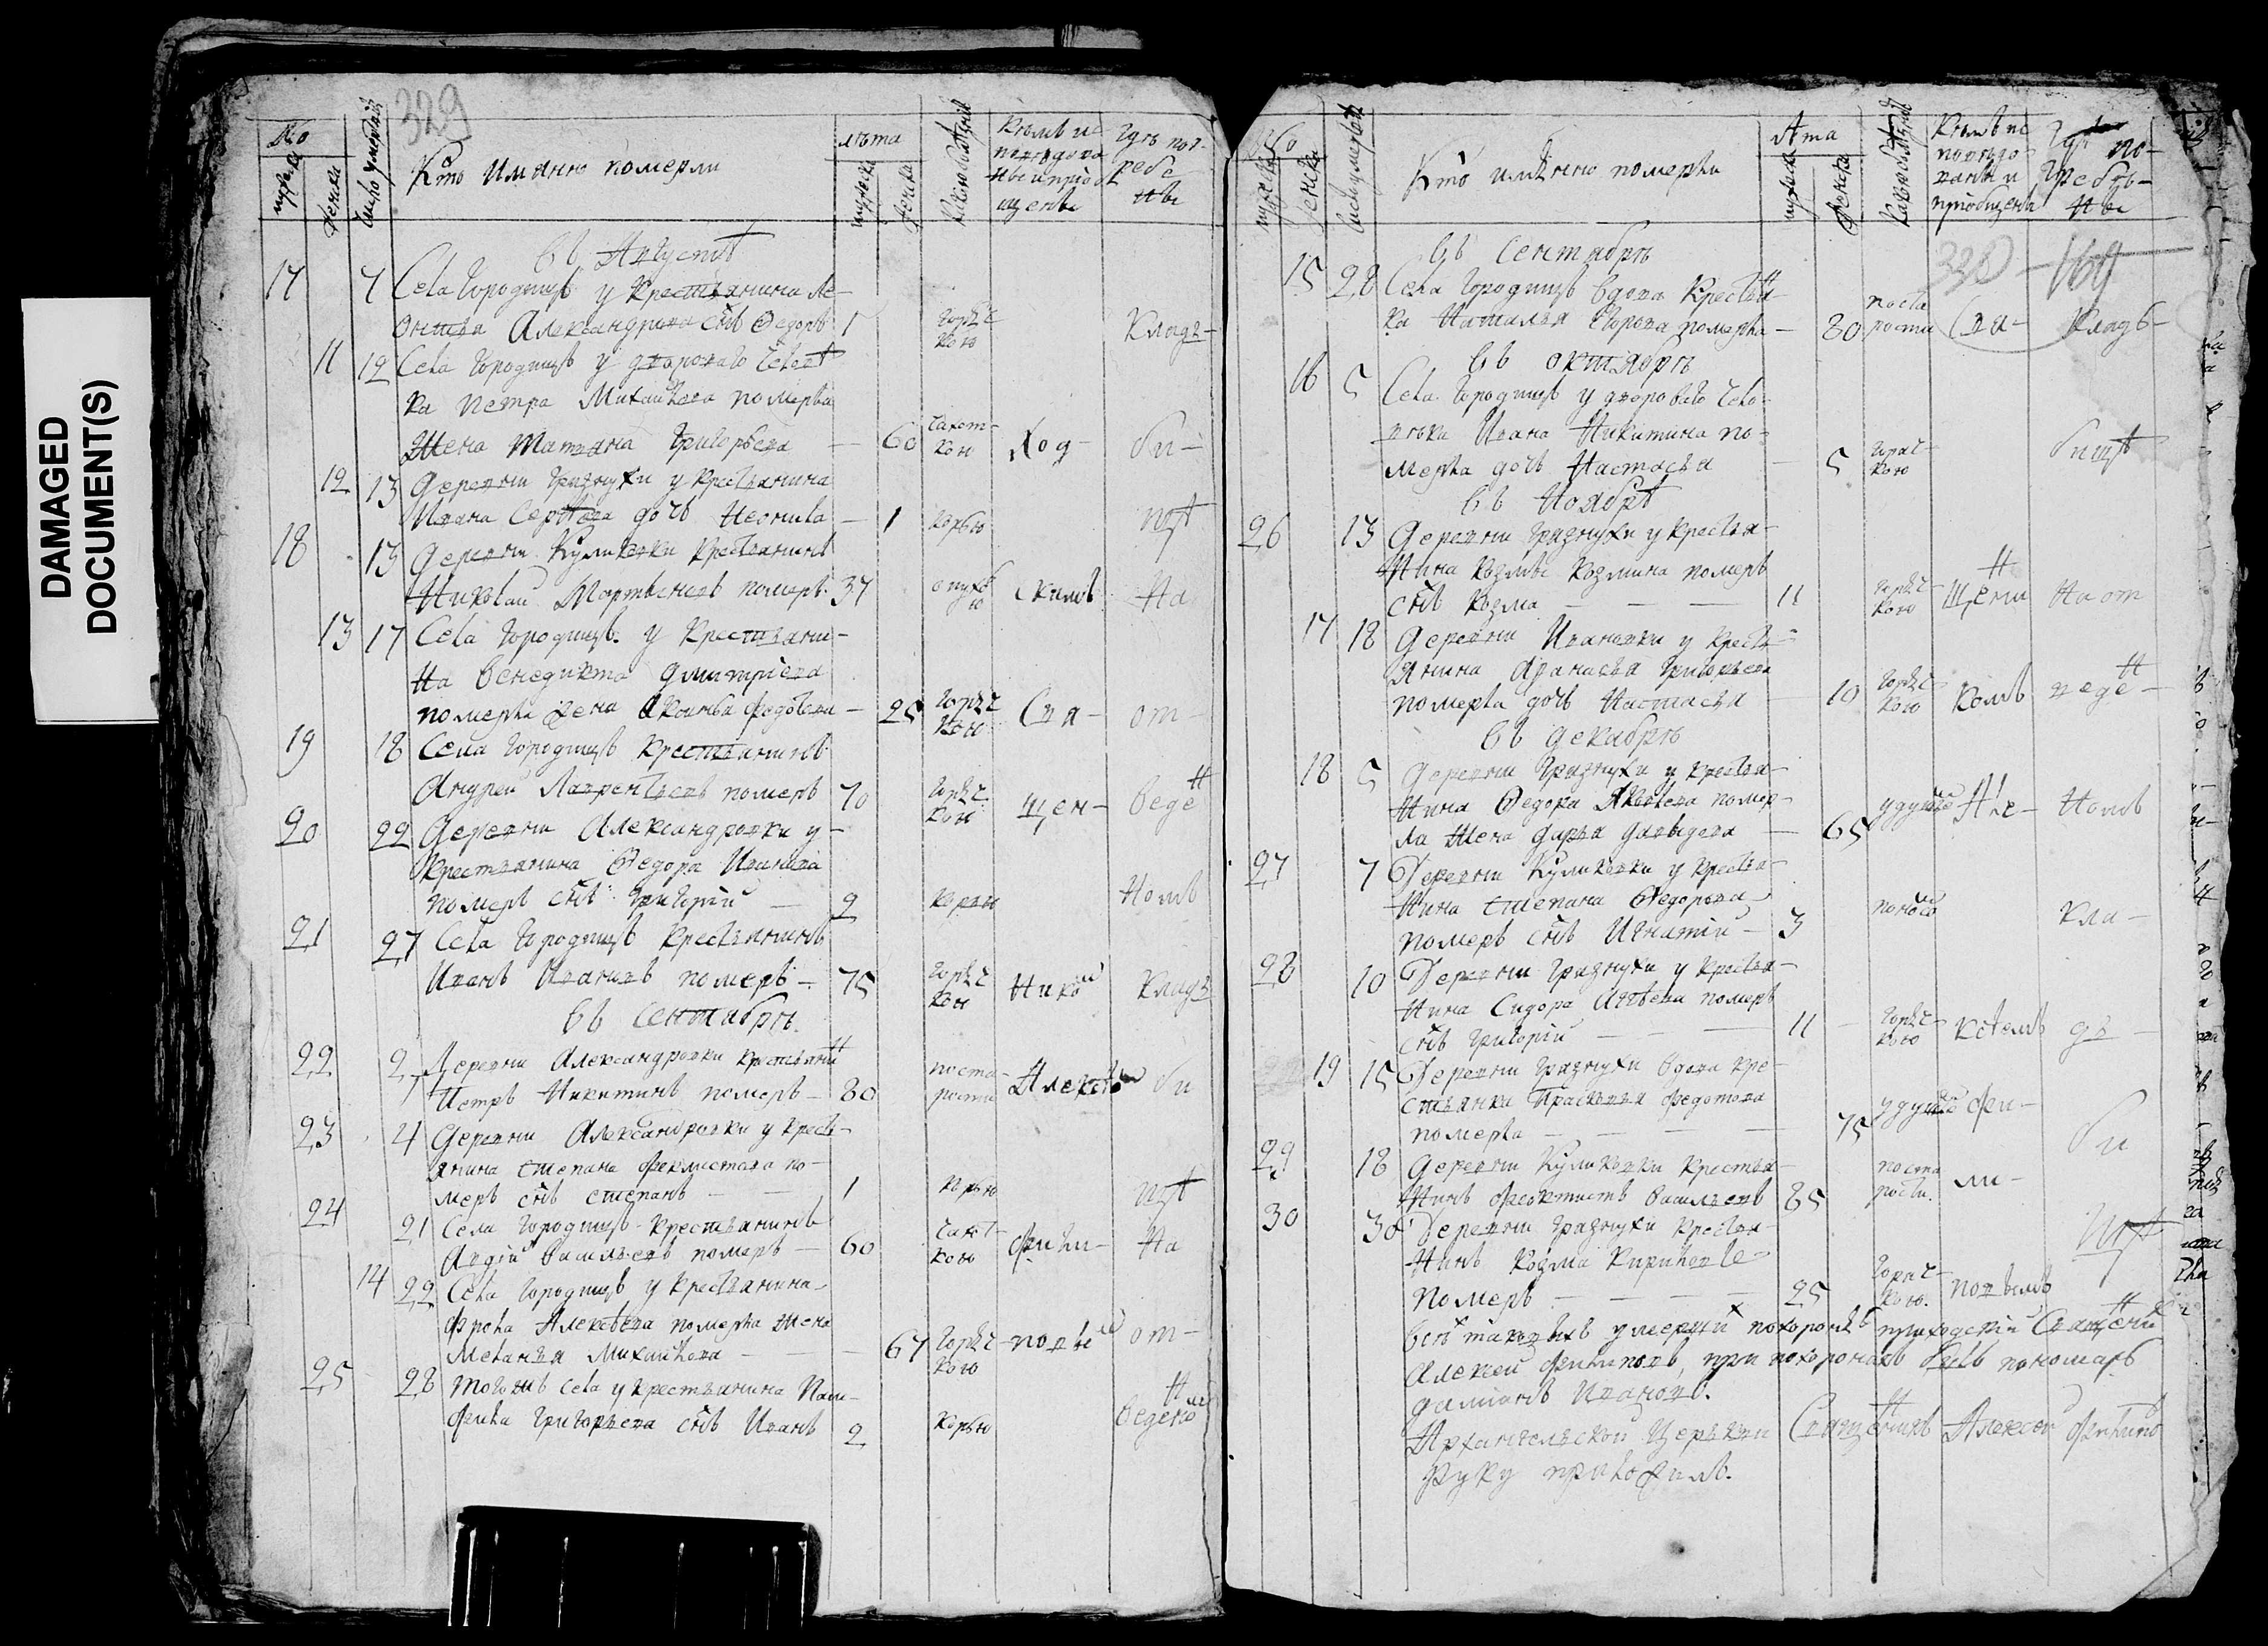 DAMAGED
DOCUMENT(S)
329
No
мужеска
женска
число умертвий
Кто имянно померли
лѣта
мужеска
женска
Кѣмъ ис
поведова
ны и приоб
щены
Гдѣ пог
ребе
ны
въ Августѣ
17 7 Села Городищъ у крестьянина Ле-
онтья Александрова снъ Федоръ 1 горяч кою кладъ-
11 12 Села Городищъ у двороваго челов
ка Петра Михайлова померла
жена Татьяна Григорьева — 60 чахот- кою
12 13 Деревни Грязнухи у крестьянина
Ивана Сергѣева дочь Неонила — 1 корью
18 13 Деревни Куликовки крестьянинъ
Николай Мартыновъ померъ 37 На
13 17 Села Городищъ у крестьяни-
на Венедикта Дмитріева
померла жена Акулина Федотова — 25 горяч кою Свя- от-
19 18 Села Городищъ крестьянинъ
Андрей Лаврентьевъ померъ 70 горяч кою щен- веден
20 22 Деревни Александровки у-
крестьянина Федора Иванова
померъ снъ Григорій — 2 корью номъ
21 27 Села Городищъ крестьянинъ
Иванъ Ивановъ померъ — 75 горяч кою ником кладъ
въ Сентябрѣ
22 2 Деревни Александровки крестьянин
Петръ Никитинъ померъ — 80 поста- рости Алексѣем би
23 4 Деревни Александровки у кресть-
янина Степана Феклистова по-
меръ снъ Степанъ — — 1 корью
24 21 Села Городищъ крестьянинъ
Авдій Васильевъ померъ — 60 чахот- кою Фили- На
14 22 Села Городищъ у крестьянина
Фрола Алексѣева померла жена
Меланья Михайлова — — 67 горяч кою повым от-
25 28 Того жъ села у крестьянина Пам-
фила Григорьева снъ Иванъ 2 корью веденом
Кто имянно померли
Лѣта
Кѣмъ ис
повѣдо-
ваны и
приобщены
Гдѣ по-
гребе-
ны
въ Сентябрѣ
330 — 169
15 28 Села Городищъ вдова крестьян
ка Наталья Егорова померла — 80 поста рости Свя- кладъ-
въ октябрѣ
16 5 Села Городищъ у двороваго чело-
вѣка Ивана Никитина по-
мерла дочь Настасья — 5 горяч- кою
въ Ноябрѣ
26 13 Деревни Грязнухи у крестья-
нина Козмы Козмина померъ
снъ Козма — — — 11 горяч- кою щенн На от
17 18 Деревни Ивановки у кресть-
янина Афанасья Григорьева
померла дочь Настасья — 10 горяч- кою комъ веден-
въ Декабрѣ
18 5 Деревни Грязнухи у крестья-
нина Федора Яковлева помер-
ла жена Дарья Давыдова — 65 Але- номъ
27 7 Деревни Куликовки у крестья-
нина Степана Федорова
померъ снъ Игнатій — 3 поносом кла-
28 10 Деревни Грязнухи у крестья-
нина Сидора померъ
снъ Григорій — — 11 горяч- кою ксѣемъ дъ —
19 15 Деревни Грязнухи вдова кре-
стьянка Прасковья Федотова
померла — — — 75 фи-
29 18 Деревни Куликовки крестья-
нинъ Феоктистъ Васильевъ 85 поста рости. ли- би
30 30 Деревни Грязнухи крестья-
нинъ Козма
померъ — — — 25 горяч- кою. повымъ
всѣх таковыхъ умерших похоронялъ приходскій Священник
Алексей Филиповъ, при похоронахъ былъ пономарь
Даміанъ Ивановъ.
Архангельской Церкви Священникъ Алексей Филипов
руку приложилъ.